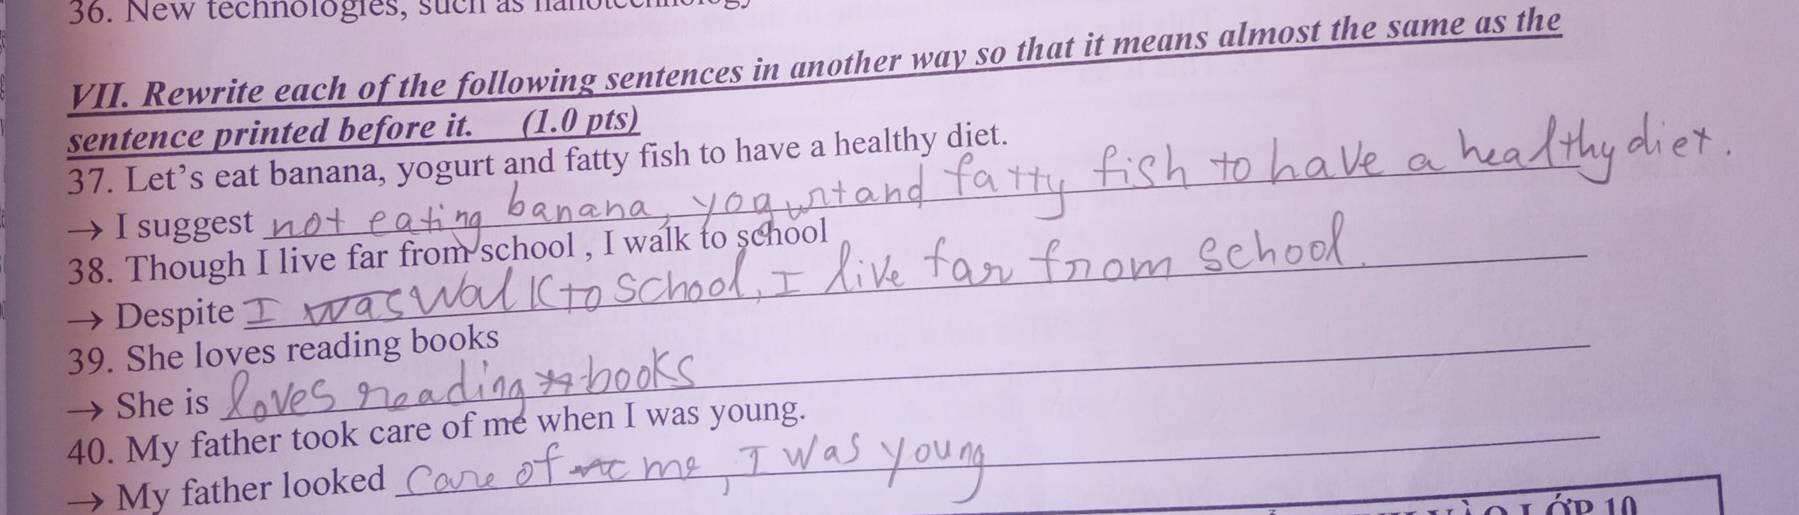 36. New technologies, such as nanotechnology
VII. Rewrite each of the following sentences in another way so that it means almost the same as the
sentence printed before it. (1.0 pts)
37. Let's eat banana, yogurt and fatty fish to have a healthy diet.
→ I suggest not eating banana, yogurt and fatty fish to have a healthy diet.
38. Though I live far from school , I walk to school
→ Despite I was walk to school, I live far from school.
39. She loves reading books
→ She is loves reading books
40. My father took care of me when I was young.
→ My father looked care of me, I was young
LỚP 10